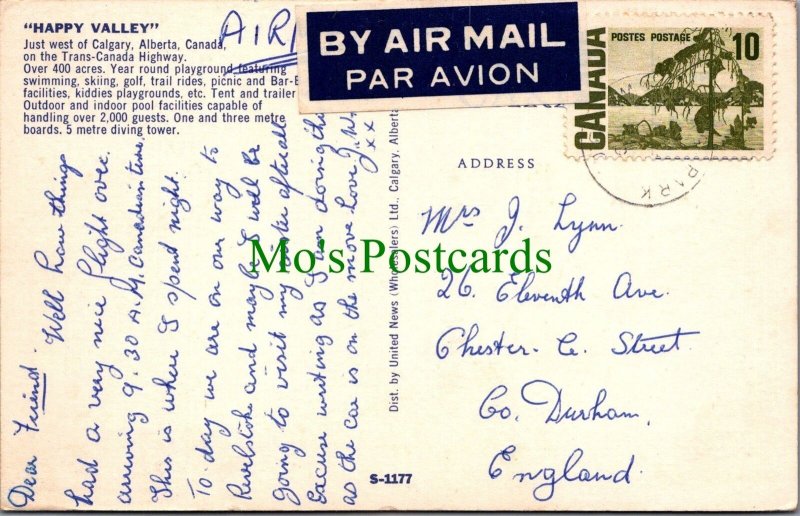 "HAPPY VALLEY"
Just west of Calgary, Alberta, Canada,
on the Trans-Canada Highway.
Over 400 acres. Year round playground featuring
swimming, skiing, golf, trail rides, picnic and Bar-B
facilities, kiddies playgrounds, etc. Tent and trailer
Outdoor and indoor pool facilities capable of
handling over 2,000 guests. One and three metre
boards. 5 metre diving tower.
AIR
BY AIR MAIL
PAR AVION
POSTES POSTAGE
10
CANADA
PARK
Dear Friend. Well how things
had a very nice flight over.
arriving 9.30 A.M. Canadian time.
This is where I spent night.
To day we are on our way to
Revelstoke and maybe I will be
going to visit my sister after all
Excuse writing as I am doing this
as the car is on the move love J. W.
xx
Dist. by United News (Wholesalers) Ltd., Calgary, Alberta
S-1177
ADDRESS
Mrs J. Lynn.
26. Eleventh Ave.
Chester-Le-Street
Co. Durham.
England.
Mo's Postcards